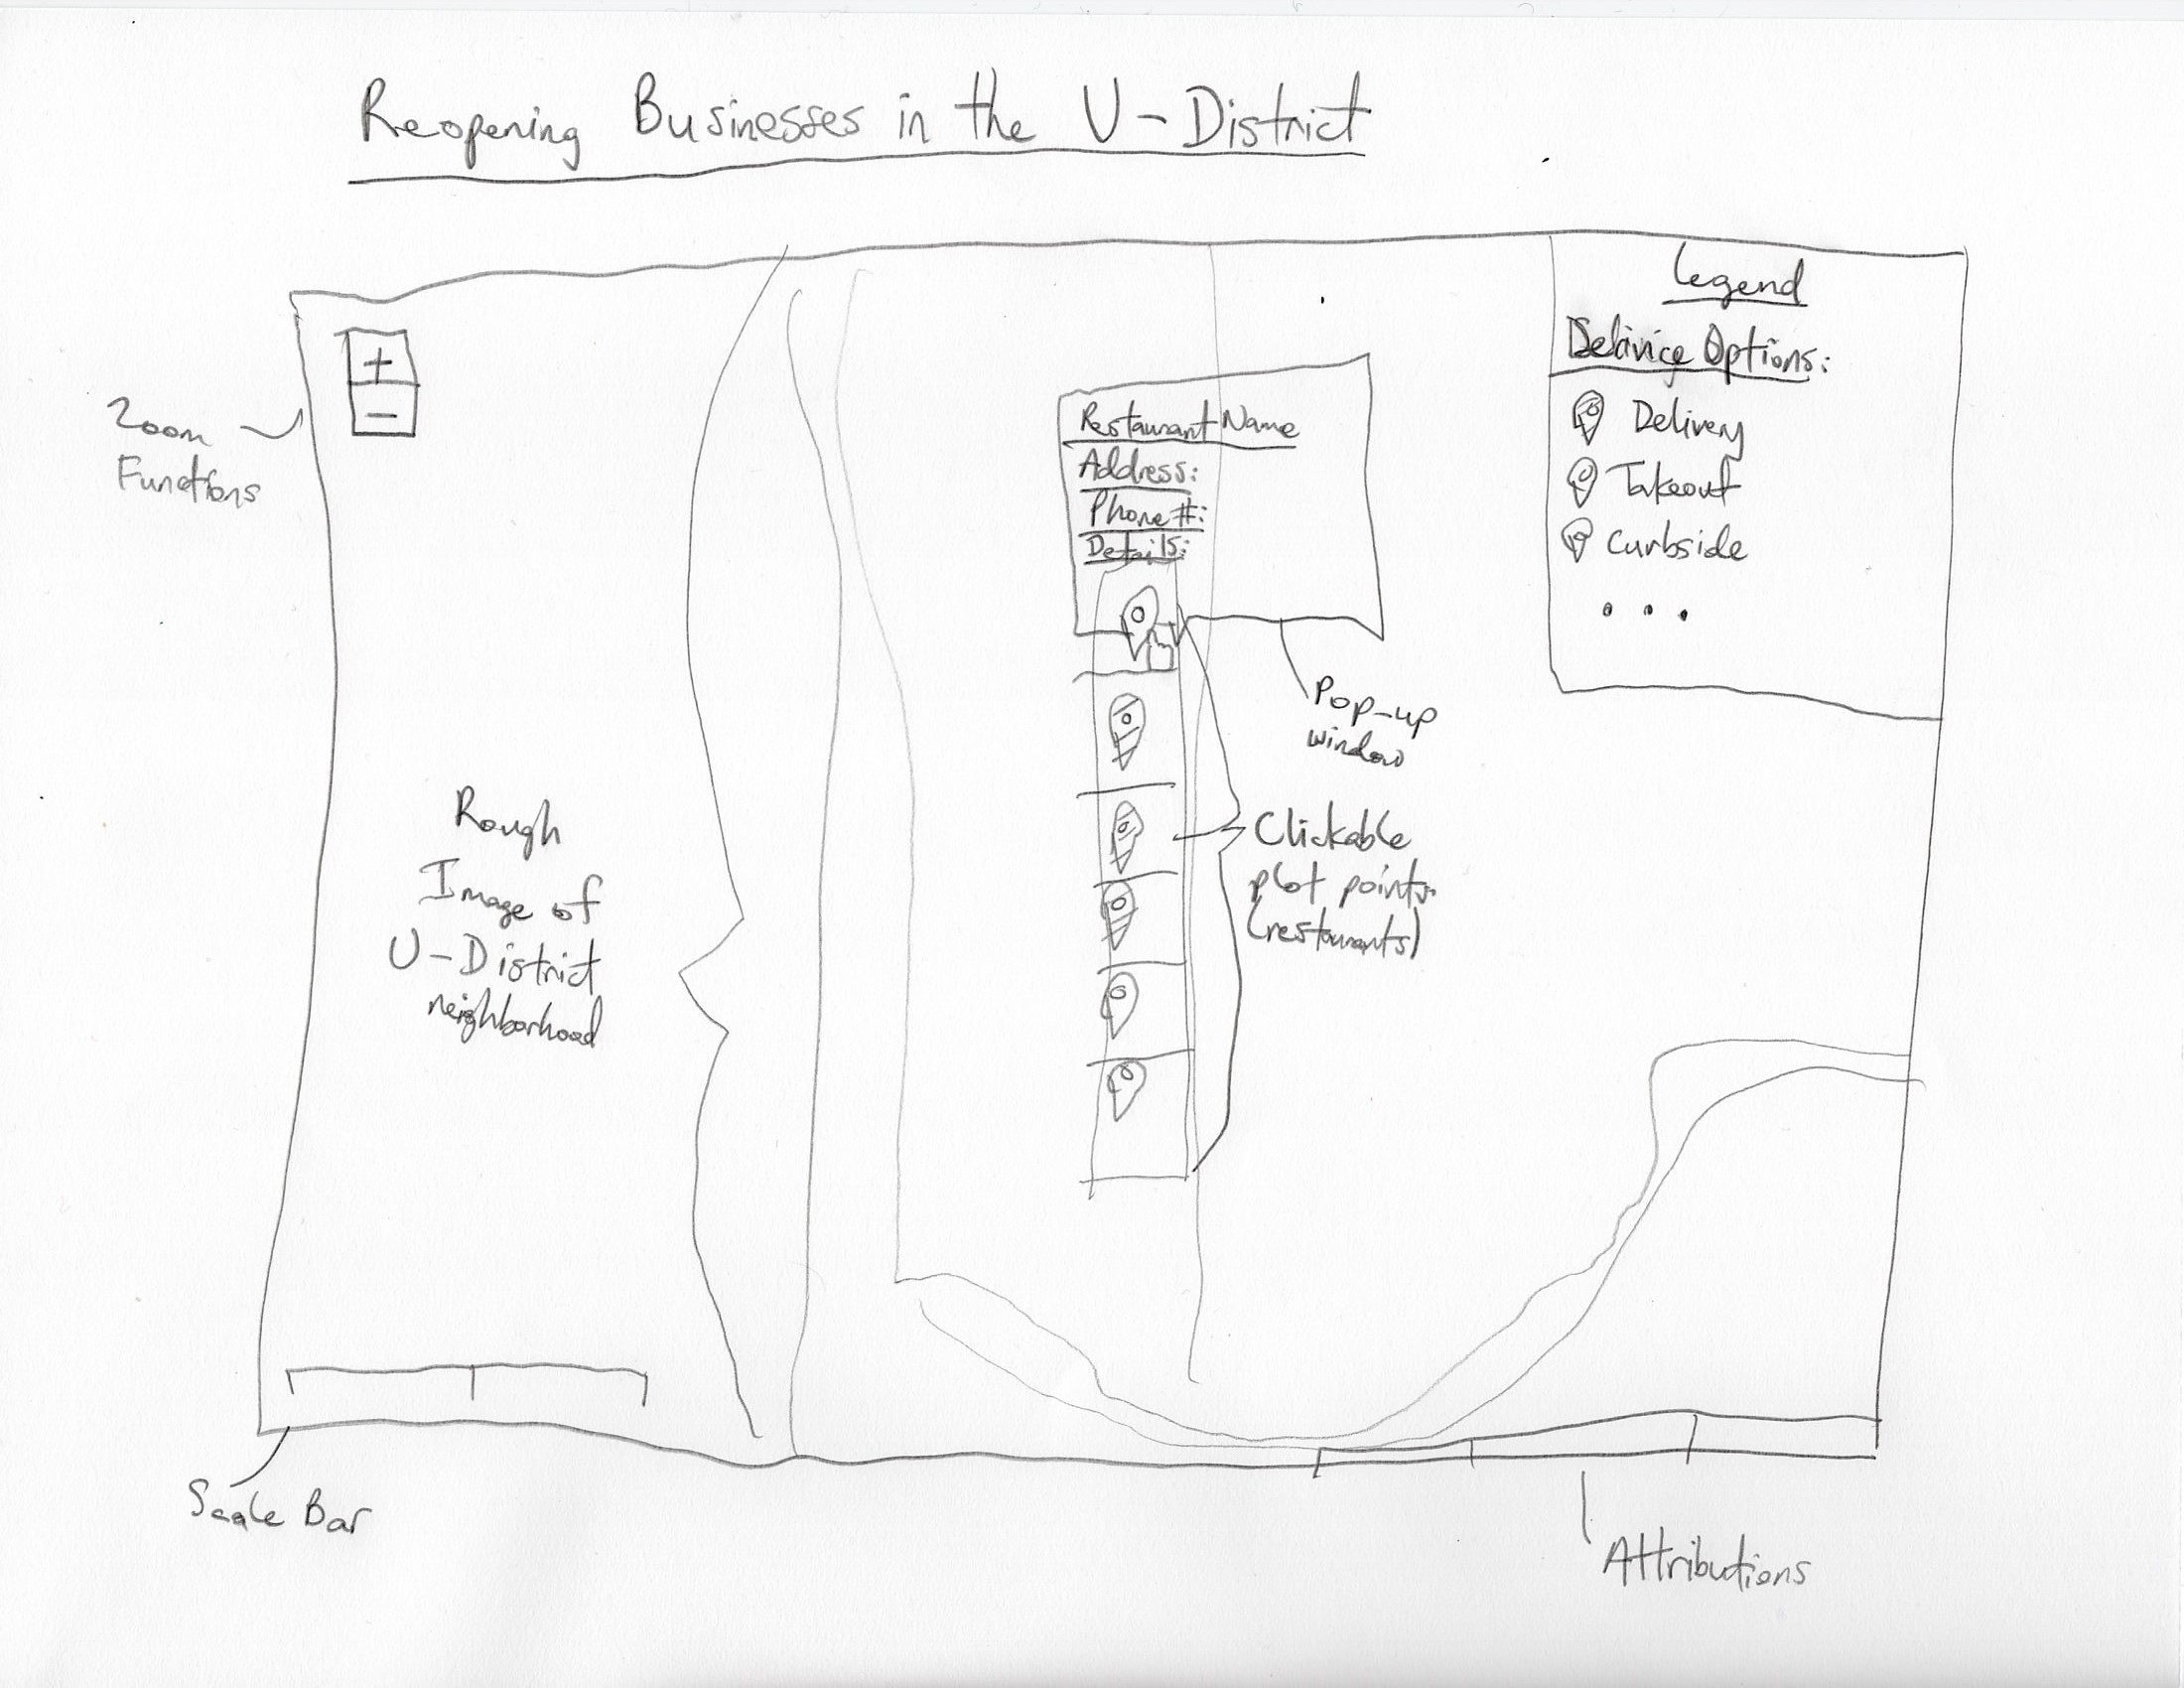 Reopening Businesses in the U-District
Zoom
Functions
+
-
Rough
Image of
U-District
neighborhood
Restaurant Name
Address:
Phone #:
Details:
Pop-up
window
Clickable
plot points
(restaurants)
Legend
Options:
Delivery
Takeout
Curbside
...
Scale Bar
Attributions